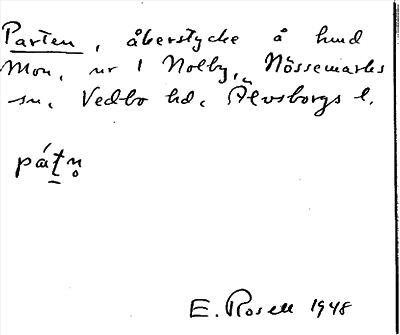 Parten, åkerstycke å hmd
Mon, nr 1 Nolby, Nössemarks
sn, Vedbo hd, Älvsborgs l.
pátn̥
E. Rosell 1948